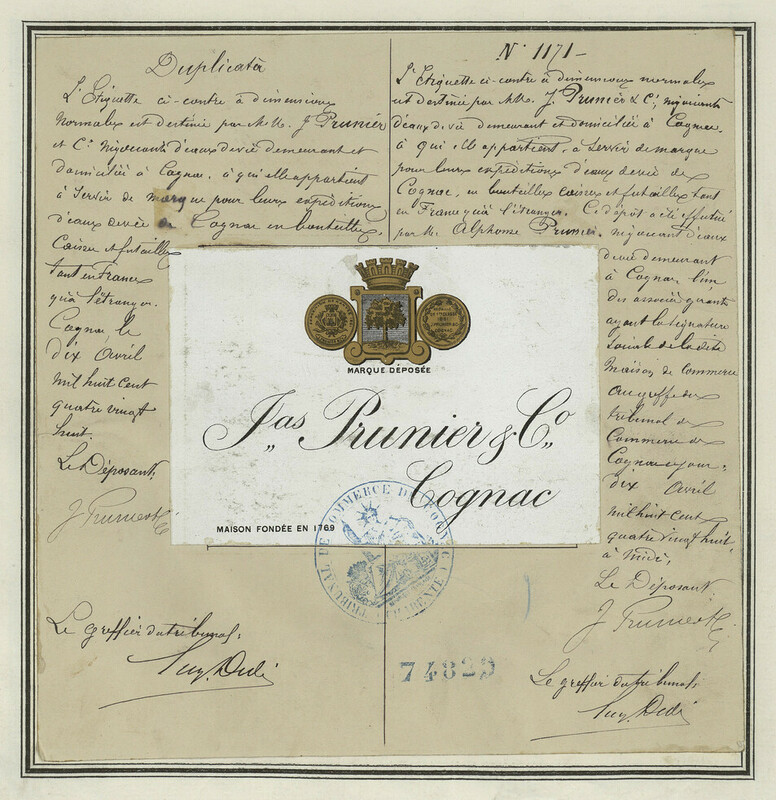 Duplicata
L'Etiquette ci-contre à dimensions
normales est destinée par M.M. J. Prunier
et Cie négociants d'eaux de vie demeurant et
domiciliée à Cognac, à qui elle appartient
à servir de marque pour leurs expéditions
d'eaux de vie de Cognac en bouteilles,
Caisses et futailles
tant en France
qu'à l'étranger.
Cognac le
dix Avril
mil huit cent
quatre vingt
huit.
Le Déposant,
J Prunier & Cie
Le greffier du tribunal,
N° 1171 -
L'Etiquette ci-contre à dimensions normales
est destinée par M.M. J. Prunier & Cie, négociants
d'eaux de vie demeurant et domiciliée à Cognac,
à qui elle appartient, à servir de marque
pour leurs expéditions d'eaux de vie de
Cognac, en bouteilles caisses et futailles tant
en France qu'à l'étranger. Ce dépôt a été effectué
par M. Alphonse Prunier, négociant d'eaux
de vie demeurant
à Cognac, l'un
des associés gérants
ayant la signature
sociale de la dite
Maison de commerce
au greffe du
tribunal de
Commerce de
Cognac ce jour,
dix Avril
mil huit cent
quatre vingt huit,
à midi,
Le Déposant,
J Prunier & Cie
Le greffier du tribunal,
MARQUE DÉPOSÉE
Jas Prunier & Co
Cognac
MAISON FONDÉE EN 1769
TRIBUNAL DE COMMERCE DE COGNAC CHARENTE
74829